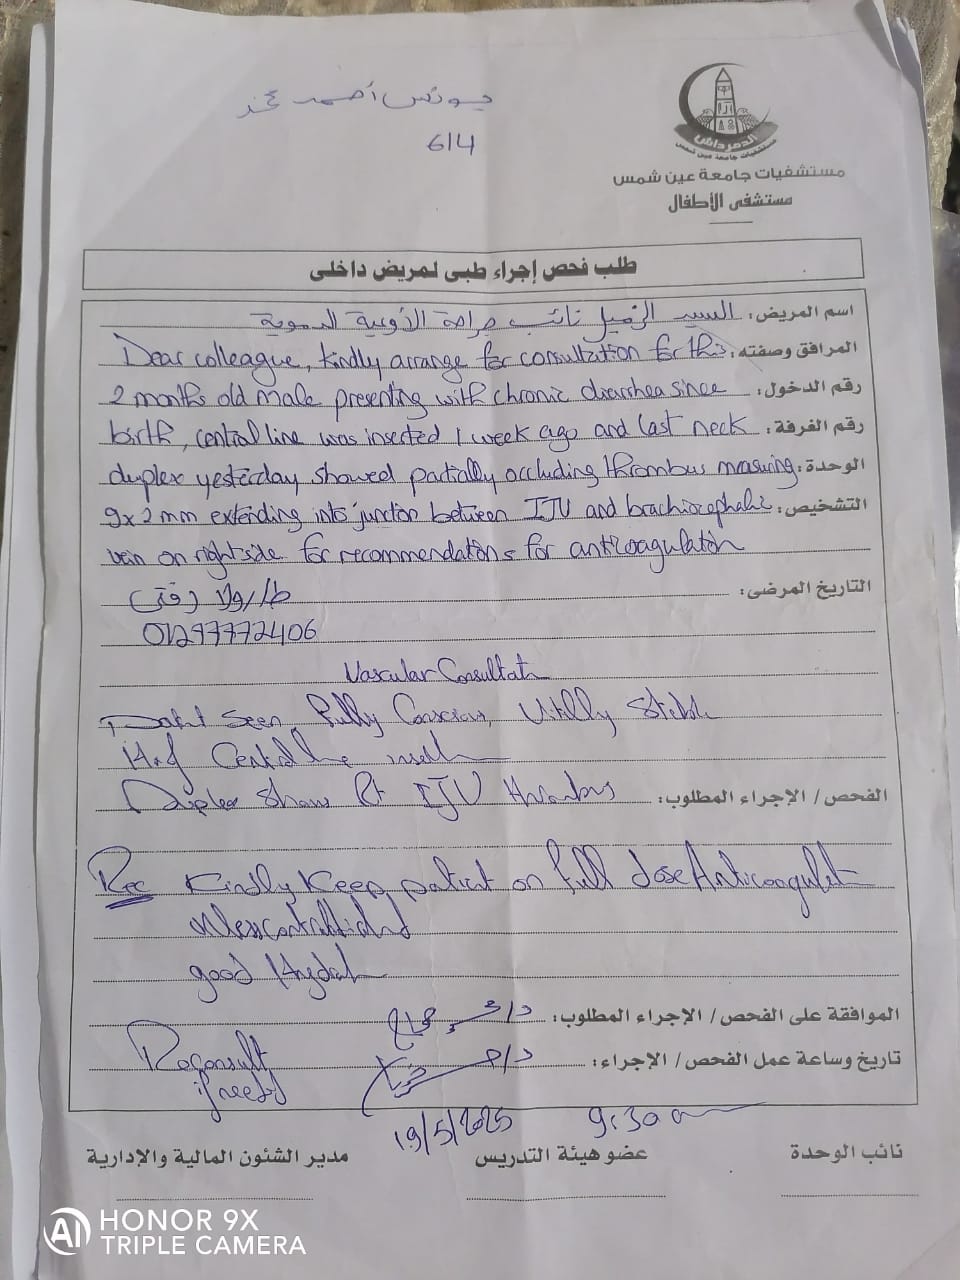 يونس أحمد محمد
614
الدمرداش
مستشفيات جامعة عين شمس
مستشفيات جامعة عين شمس
مستشفى الأطفال
طلب فحص إجراء طبى لمريض داخلى
اسم المريض: السيد الزميل نائب جراحة الأوعية الدموية
المرافق وصفته: Dear colleague, kindly arrange for consultation for this
رقم الدخول: 2 months old male presenting with chronic diarrhea since
رقم الغرفة: birth, central line was inserted 1 week ago and last neck
الوحدة: duplex yesterday showed partially occluding thrombus measuring
التشخيص: 9x2 mm extending into junction between IJV and brachiocephalic
vein on right side for recommendations for anticoagulation
التاريخ المرضى:
01297772406
Vascular Consultat
Patient seen Fully Conscious, Vitally Stable
H.of Central line
Duplex Show Rt IJV thrombus
الفحص/ الإجراء المطلوب:
Rec Kindly Keep patient on full dose Anticoagulant
unless contraindicated
good Hydrat
الموافقة على الفحص/ الإجراء المطلوب: د/
تاريخ وساعة عمل الفحص/ الإجراء: د/
Reconsult
if need
19/5/2025 9:30 am
نائب الوحدة
عضو هيئة التدريس
مدير الشئون المالية والإدارية
AI HONOR 9X
TRIPLE CAMERA